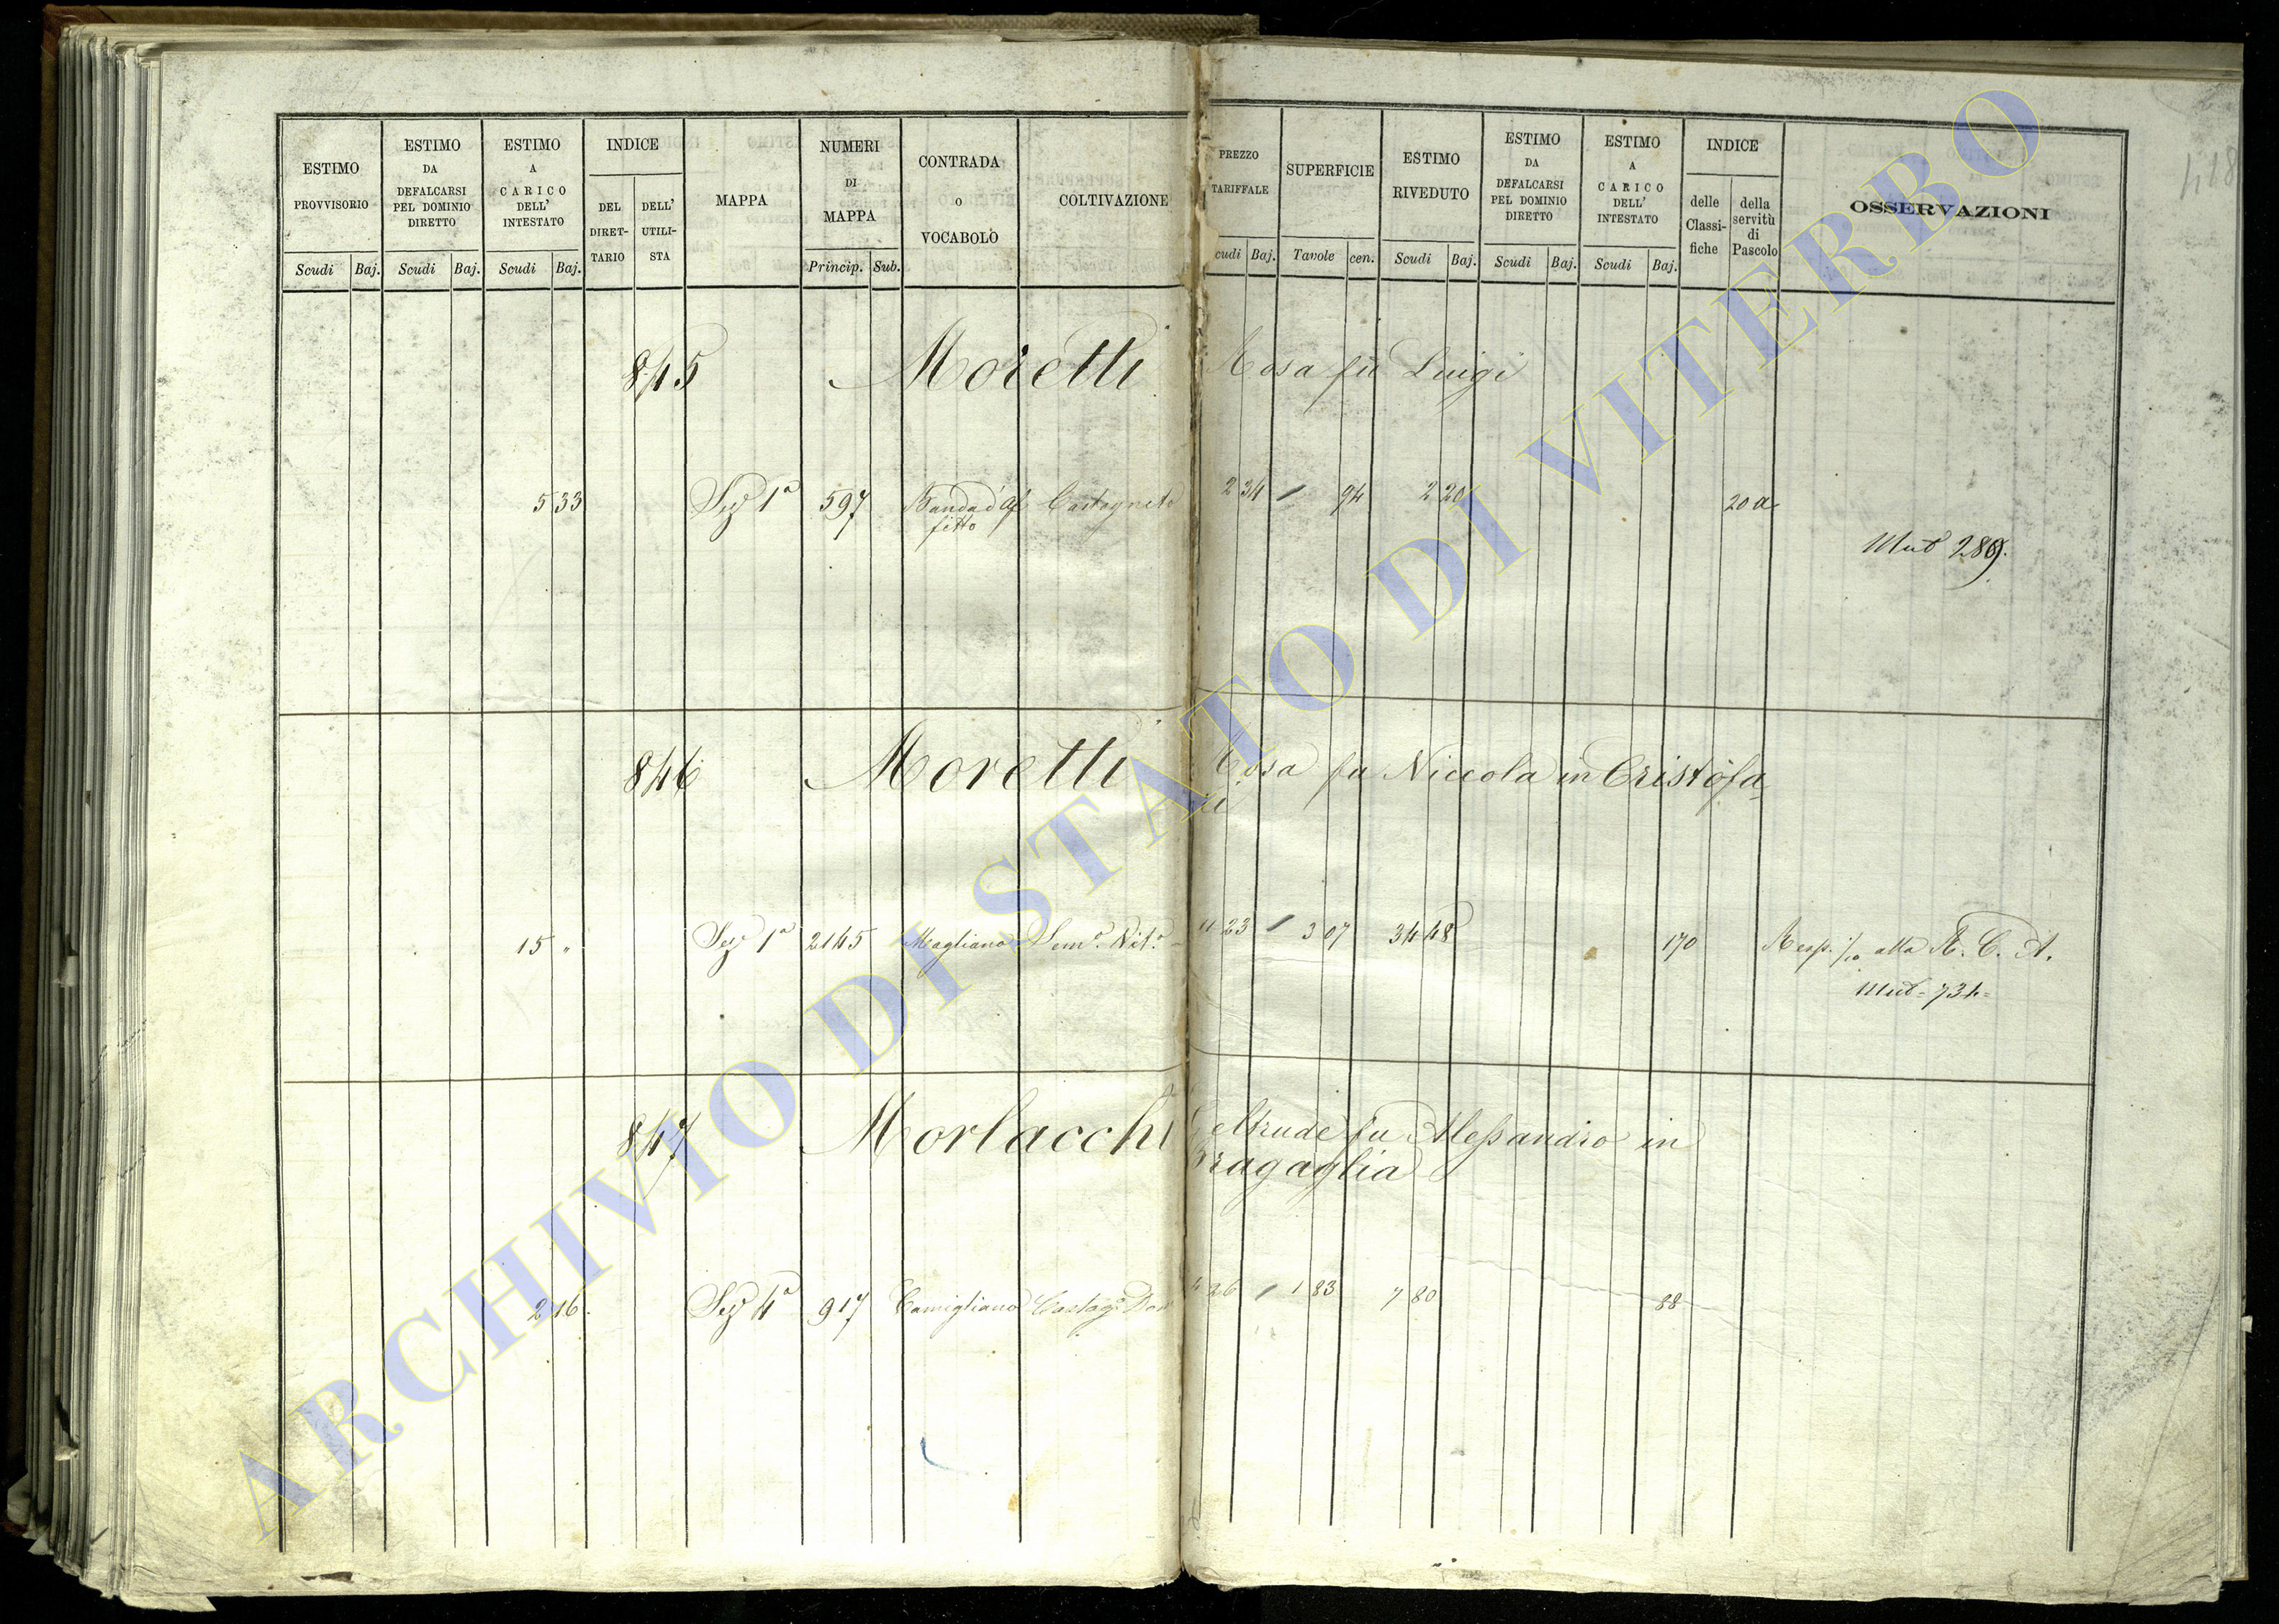 ESTIMO PROVVISORIO
Scudi Baj.
ESTIMO DA DEFALCARSI PEL DOMINIO DIRETTO
Scudi Baj.
ESTIMO A CARICO DELL' INTESTATO
Scudi Baj.
INDICE
DEL DIRET- TARIO
DELL' UTILI- STA
MAPPA
NUMERI DI MAPPA
Princip. Sub.
CONTRADA o VOCABOLO
COLTIVAZIONE
PREZZO TARIFFALE
cudi Baj.
SUPERFICIE
Tavole cen.
ESTIMO RIVEDUTO
Scudi Baj.
ESTIMO DA DEFALCARSI PEL DOMINIO DIRETTO
Scudi Baj.
ESTIMO A CARICO DELL' INTESTATO
Scudi Baj.
INDICE
delle Classi- fiche
della servitù di Pascolo
OSSERVAZIONI
418
845 Moretti Rosa fu Luigi
5 33 Sez 1a 597 Banda d'af Castagneto 2 34 / 94 2 20 20 a
fitto
Mut 289.
846 Moretti Rosa fu Niccola in Cristofa
ri
15 " Sez 1a 2145 Magliano Semo. Vito. 11 23 / 3 07 34 48 170 Resp. 1/10 alla R. C. A.
Mut = 734 =
847 Morlacchi Geltrude fu Alessandro in
Bragaglia
2 16. Sez 4a 917 Camigliano Castago. Dom 4 26 / 1 83 7 80 88
ARCHIVIO DI STATO DI VITERBO